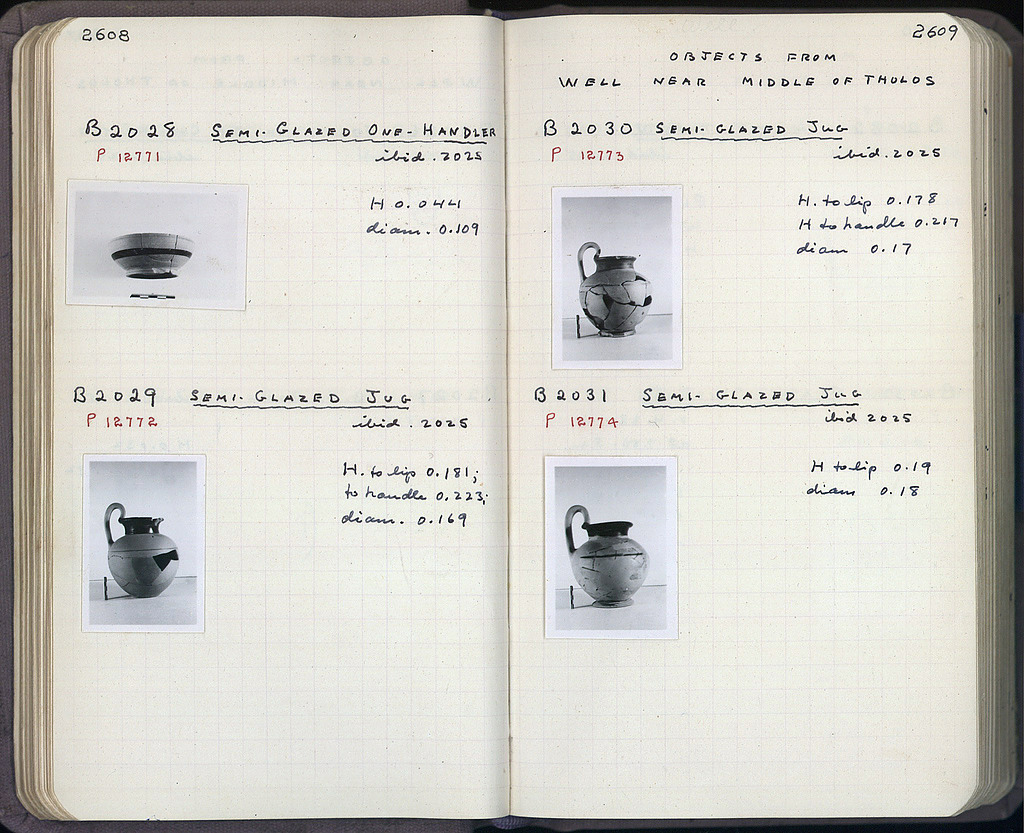 2608
B 2028 SEMI-GLAZED ONE-HANDLER
P 12771 ibid. 2025
H 0.044
diam. 0.109
B 2029 SEMI-GLAZED JUG
P 12772 ibid. 2025
H. to lip 0.181;
to handle 0.223;
diam. 0.169
2609
OBJECTS FROM
WELL NEAR MIDDLE OF THOLOS
B 2030 SEMI-GLAZED JUG
P 12773 ibid. 2025
H. to lip 0.178
H to handle 0.217
diam 0.17
B 2031 SEMI-GLAZED JUG
P 12774 ibid 2025
H to lip 0.19
diam 0.18